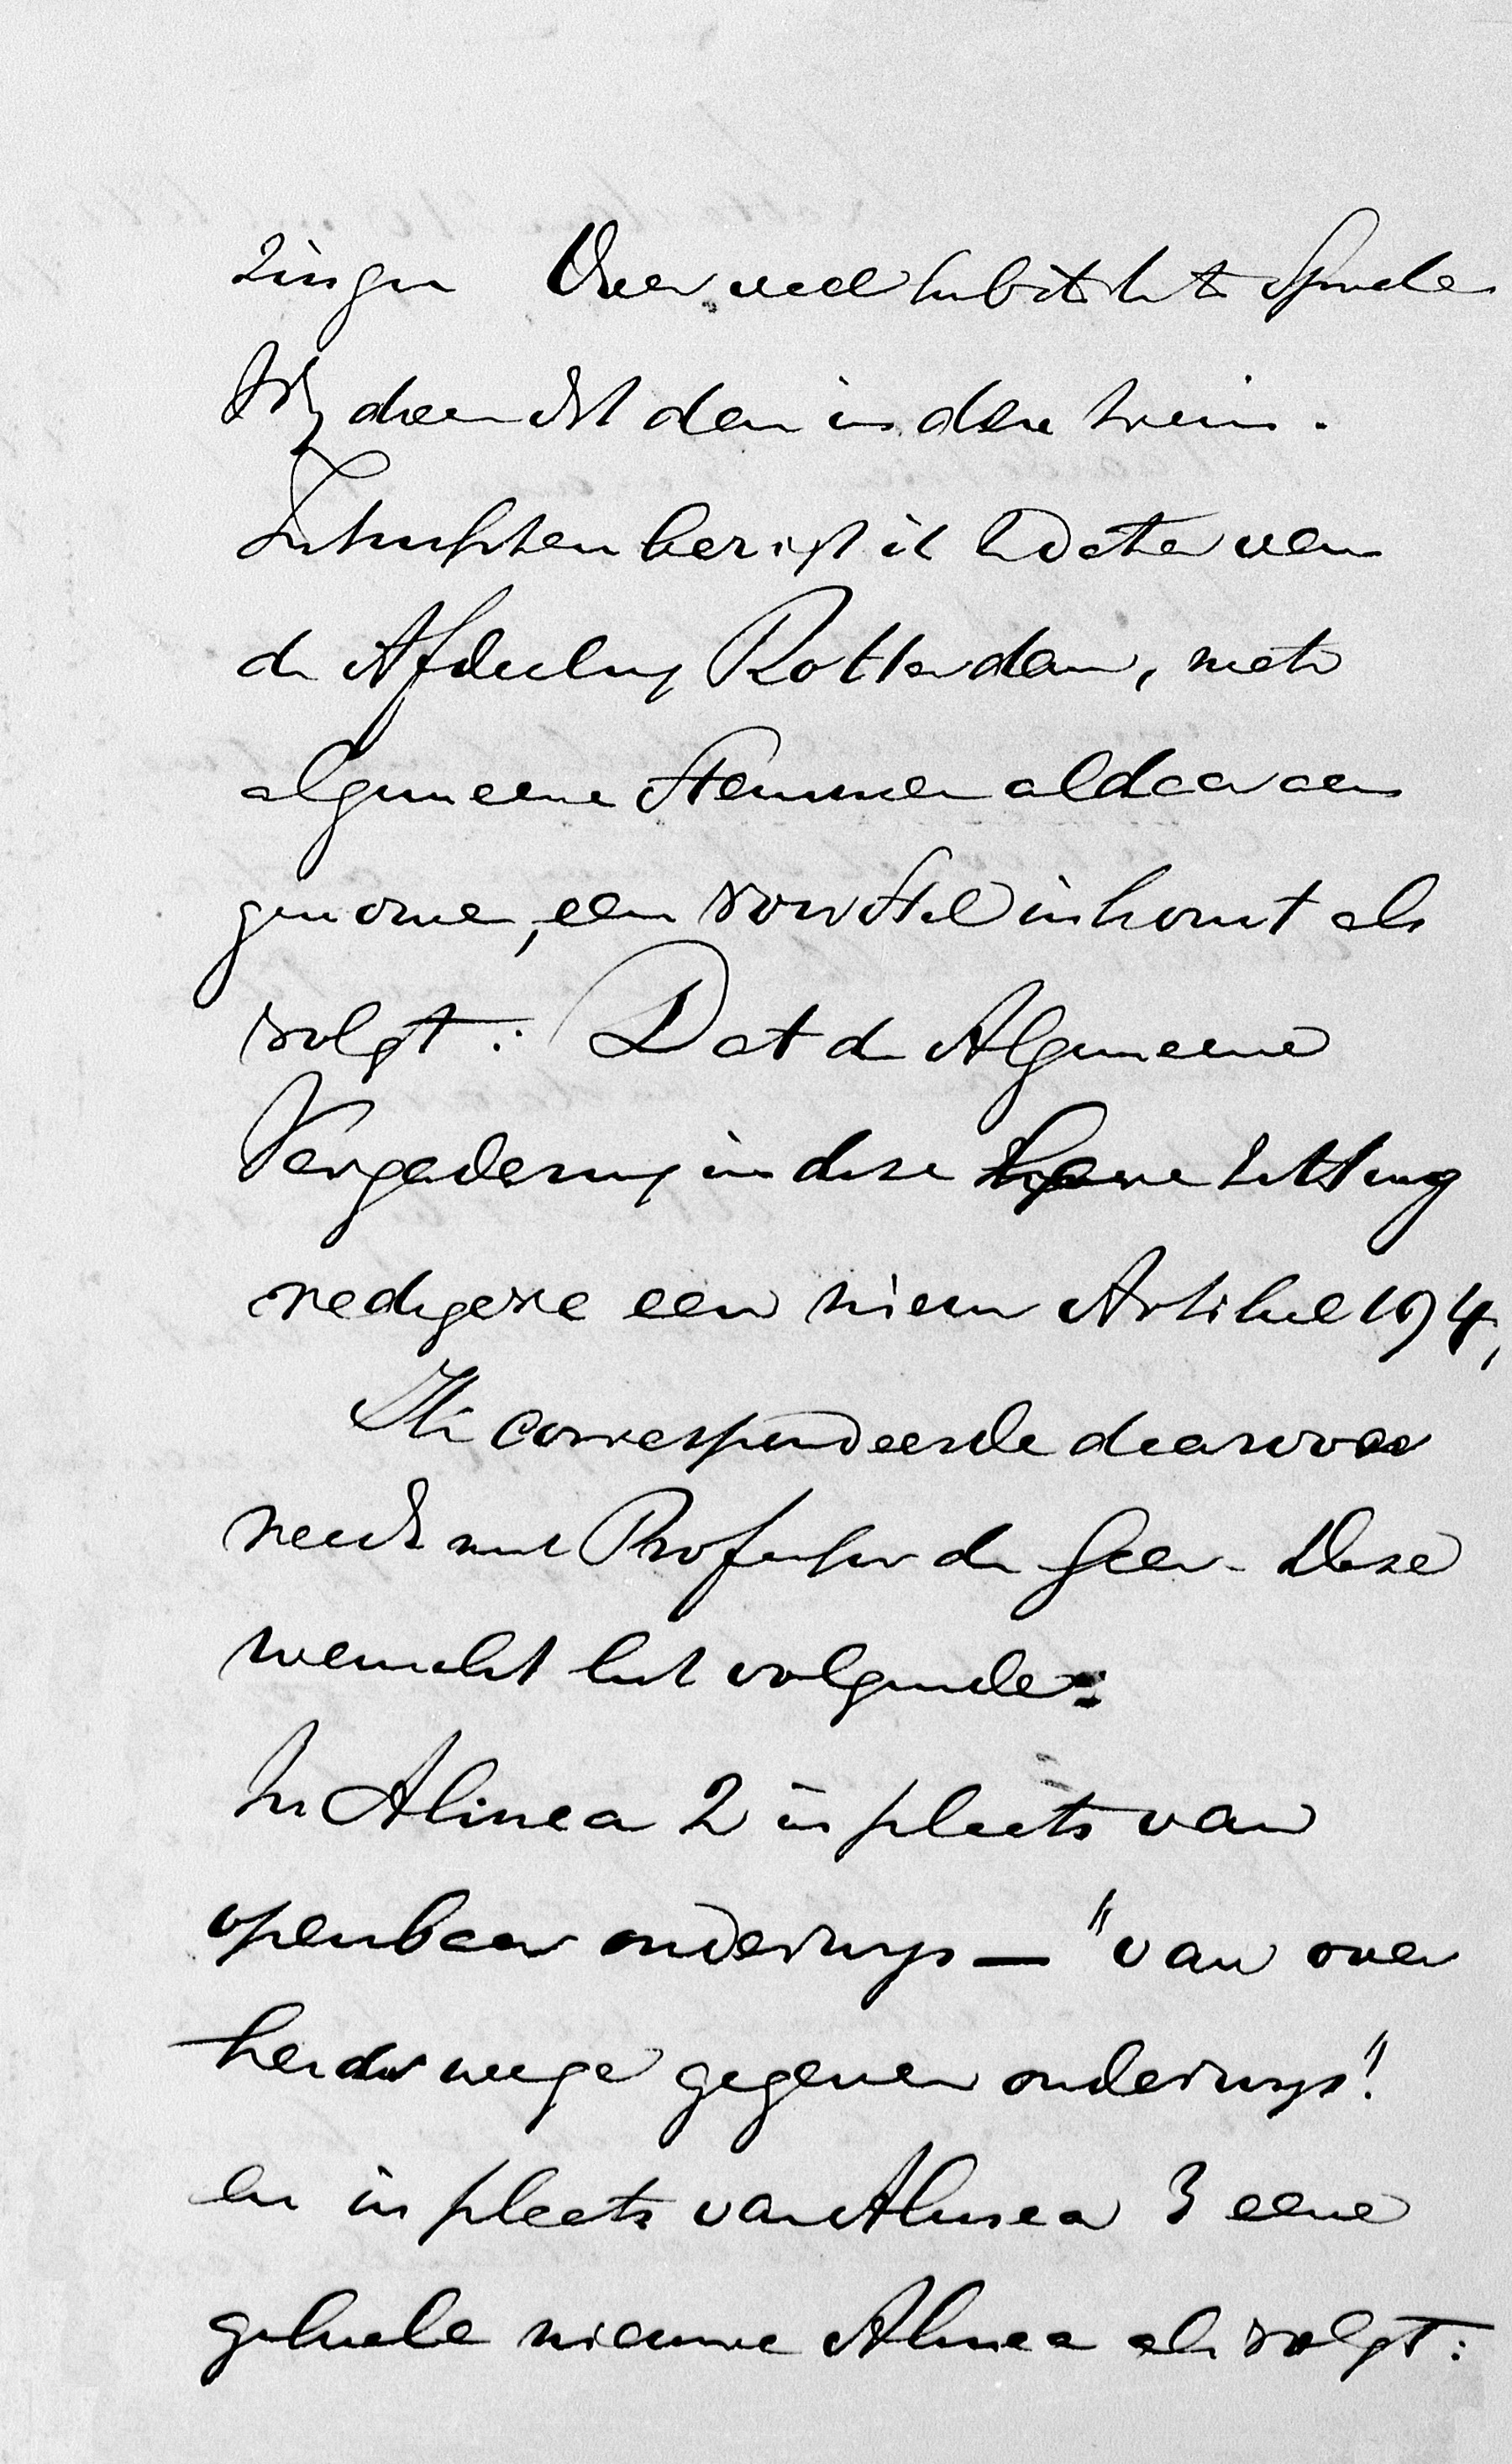 zingen Over veel heb ik het te spreken
Wij doen dit dan in den trein.
Intusschen bericht ik U dat er van
de Afdeeling Rotterdam, met
algemeene Stemmen aldaar aan
genomen, een voorstel inkomt als
volgt: Dat de Algemeene
Vergadering in deze hare zitting
redigere een nieuw Artikel 194,
Ik correspondeerde daarover
reeds met Professor de Geer. Deze
wenscht het volgende:
In Alinea 2 in plaats van
openbaar onderwijs — "van over
heidswege gegeven onderwijs"!
en in plaats van Alinea 3 eene
geheele nieuwe Alinea als volgt: